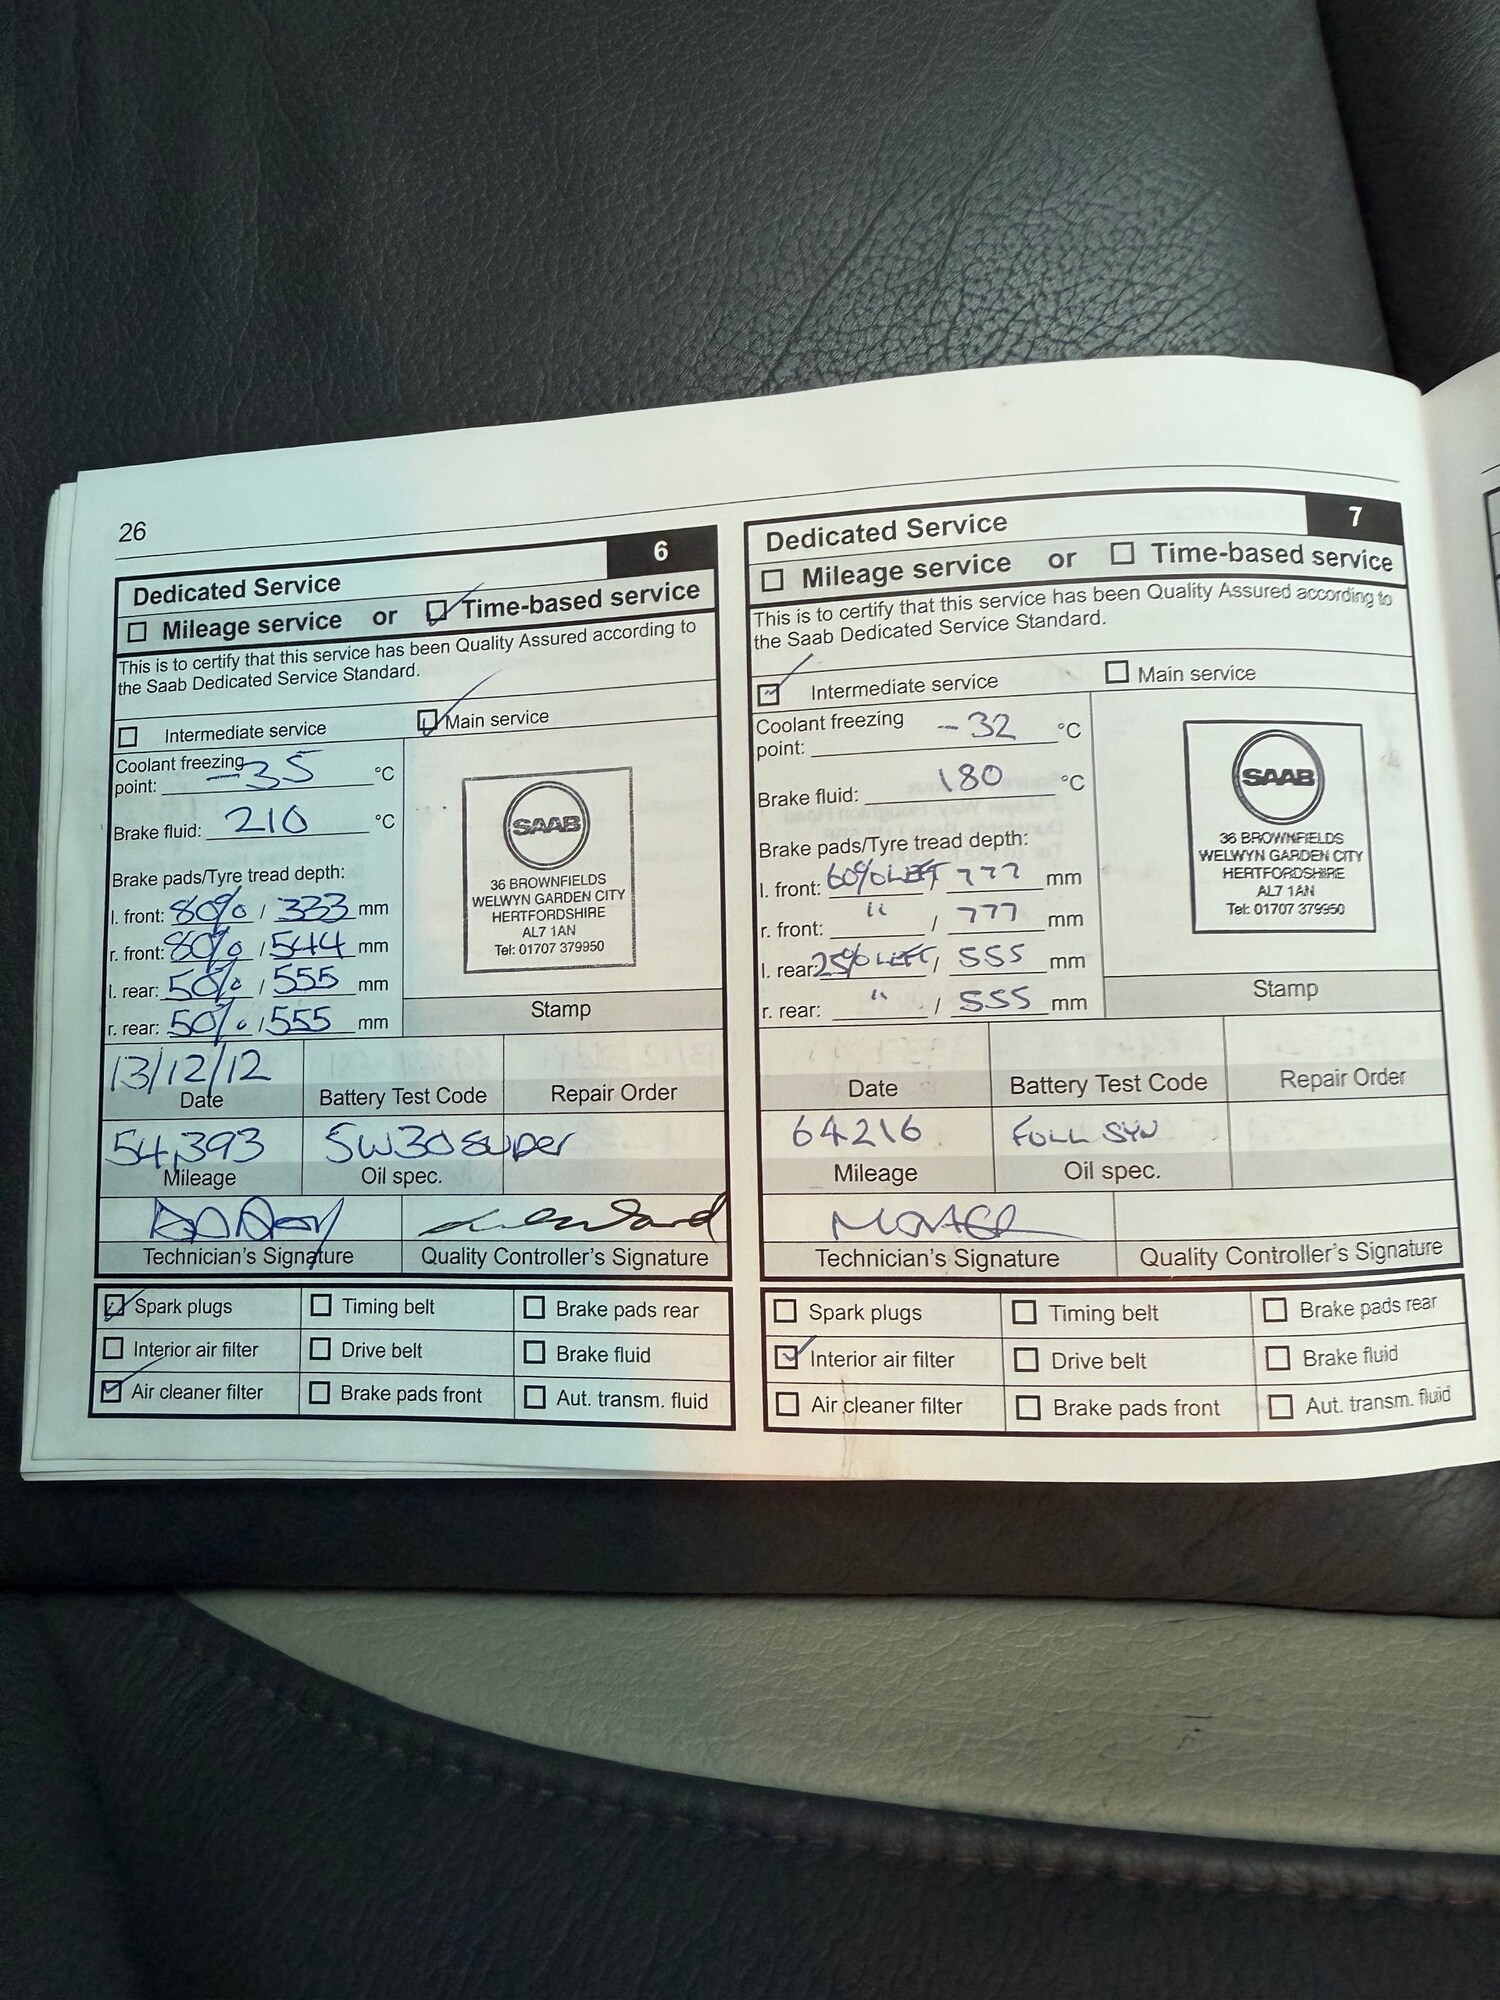 26
6
Dedicated Service
Mileage service or Time-based service
This is to certify that this service has been Quality Assured according to
the Saab Dedicated Service Standard.
Intermediate service Main service
Coolant freezing
point: -35 °C
Brake fluid: 210 °C
Brake pads/Tyre tread depth:
l. front: 80% / 333 mm
r. front: 80% / 544 mm
l. rear: 50% / 555 mm
r. rear: 50% / 555 mm
SAAB
36 BROWNFIELDS
WELWYN GARDEN CITY
HERTFORDSHIRE
AL7 1AN
Tel: 01707 379950
Stamp
13/12/12
Date Battery Test Code Repair Order
54,393 5W30 super
Mileage Oil spec.
Technician's Signature Quality Controller's Signature
Spark plugs Timing belt Brake pads rear
Interior air filter Drive belt Brake fluid
Air cleaner filter Brake pads front Aut. transm. fluid
7
Dedicated Service
Mileage service or Time-based service
This is to certify that this service has been Quality Assured according to
the Saab Dedicated Service Standard.
Intermediate service Main service
Coolant freezing
point: -32 °C
Brake fluid: 180 °C
Brake pads/Tyre tread depth:
l. front: 60% LEFT / 777 mm
r. front: " / 777 mm
l. rear: 25% LEFT / 555 mm
r. rear: " / 555 mm
SAAB
36 BROWNFIELDS
WELWYN GARDEN CITY
HERTFORDSHIRE
AL7 1AN
Tel: 01707 379950
Stamp
Date Battery Test Code Repair Order
64216 FULL SYN
Mileage Oil spec.
Technician's Signature Quality Controller's Signature
Spark plugs Timing belt Brake pads rear
Interior air filter Drive belt Brake fluid
Air cleaner filter Brake pads front Aut. transm. fluid